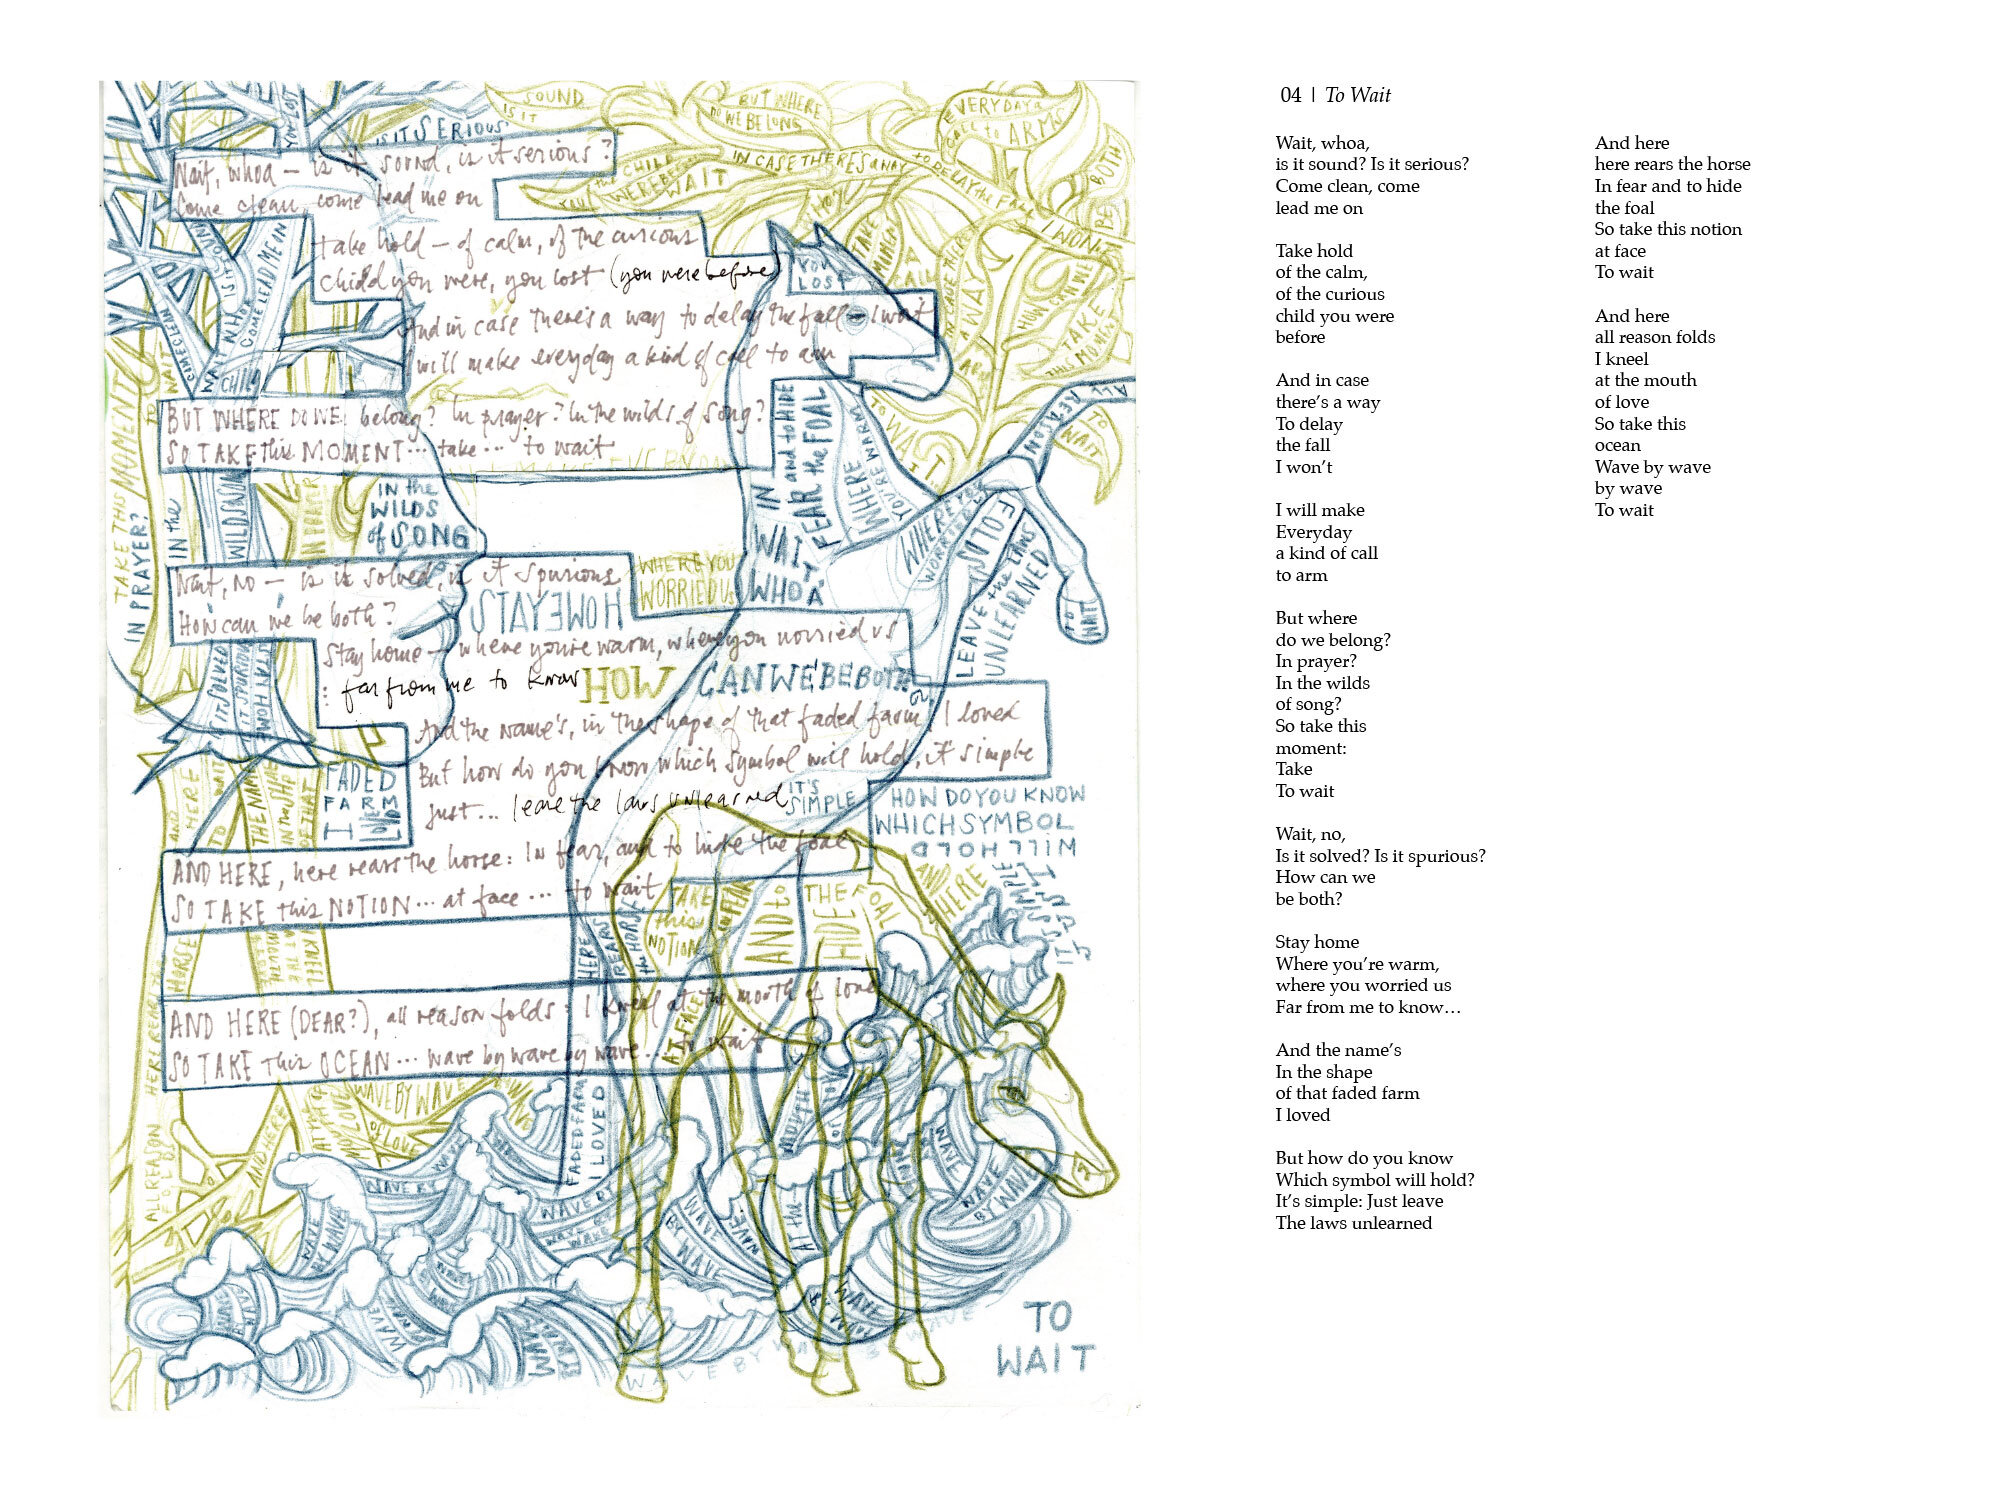 IS IT SERIOUS
SOUND
IS IT
BUT WHERE
DO WE BELONG
EVERYDAY A
CALL to ARMS
BOTH
BE
Wait, whoa — is it sound, is it serious?
Come clean, come lead me on
IN CASE THERES A WAY
to DELAY the FALL
I WON'T
the CHILD
YOU WERE BEFORE
WAIT
take hold — of calm, of the curious
child you were, you lost (you were before)
YOU
LOST
And in case there's a way to delay the fall — I wait
I will make everyday a kind of call to arm
COME LEAD ME IN
CHILD
HOW CAN WE
TAKE
THIS MOMENT
A WAY
BUT WHERE DO WE belong? In prayer? In the wilds of song?
SO TAKE this MOMENT... take... to wait
TAKE THIS MOMENT
IN PRAYER?
IN the
WILDS
of SONG
IN FEAR and to HIDE
the FOAL
WHERE
YOU'RE WARM
TO WAIT
ALL REASON
FOLDS
TO
WAIT
WAIT
WHOA
LEAVE the LAWS
UNLEARNED
TO
WAIT
WHERE YOU
WORRIED US
Wait, no — is it solved, is it spurious
How can we be both?
STAY HOME
Stay home — where you're warm, where you worried us
: far from me to know
HOW CAN WE BE BOTH?
And the name's, in the shape of that faded farm, I loved
But how do you know which symbol will hold, it simple
Just... leave the laws unlearned
IT'S
SIMPLE
FADED
FARM
I LOVED
HOW DO YOU KNOW
WHICH SYMBOL
WILL HOLD
AND HERE
IT'S SIMPLE
AND HERE, here rears the horse: In fear, and to hide the foal
SO TAKE this NOTION... at face... to wait
TAKE
this
NOTION
AND to
HIDE
THE FOAL
HERE
REARS
the HORSE
AT FACE
AND HERE (DEAR?), all reason folds: I kneel at the mouth of love
SO TAKE this OCEAN... wave by wave by wave... to wait
ALL REASON
FOLDS
HERE REARS
HORSE
AND HERE
WAVE BY WAVE
OF LOVE
FADED FARM
I LOVED
AT the MOUTH
OF LOVE
WAVE
BY WAVE
WAVE BY
WAVE
WAVE
BY WAVE
WAVE
BY WAVE
WAVE BY WAVE
WAVE
TO
WAIT
04 | To Wait
Wait, whoa,
is it sound? Is it serious?
Come clean, come
lead me on
Take hold
of the calm,
of the curious
child you were
before
And in case
there's a way
To delay
the fall
I won't
I will make
Everyday
a kind of call
to arm
But where
do we belong?
In prayer?
In the wilds
of song?
So take this
moment:
Take
To wait
Wait, no,
Is it solved? Is it spurious?
How can we
be both?
Stay home
Where you're warm,
where you worried us
Far from me to know…
And the name's
In the shape
of that faded farm
I loved
But how do you know
Which symbol will hold?
It's simple: Just leave
The laws unlearned
And here
here rears the horse
In fear and to hide
the foal
So take this notion
at face
To wait
And here
all reason folds
I kneel
at the mouth
of love
So take this
ocean
Wave by wave
by wave
To wait